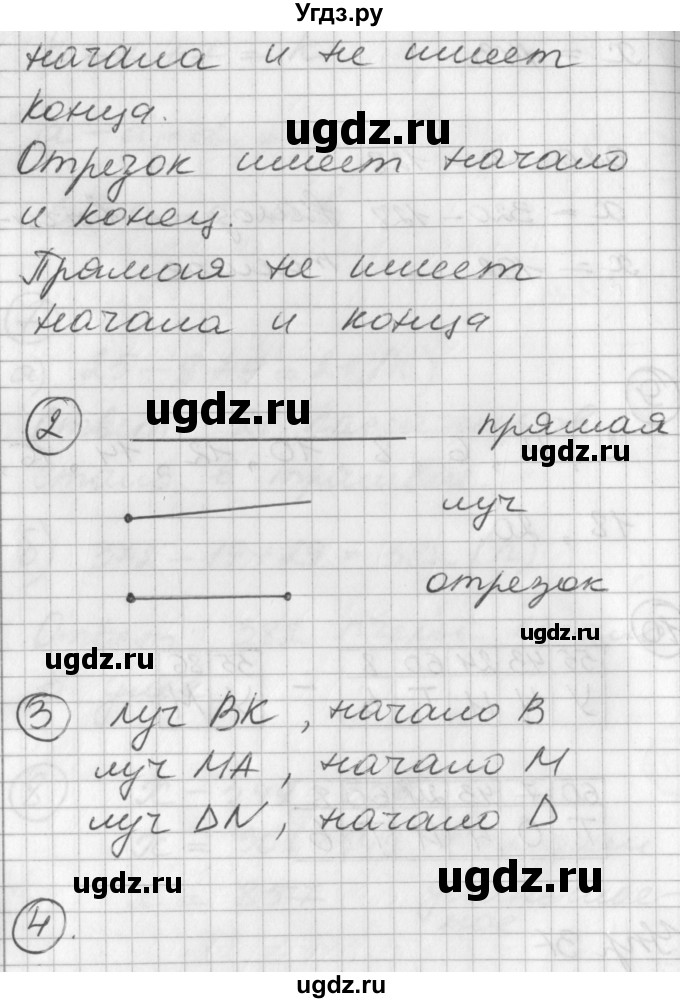 Угдз.ру
начала и не имеет
конца.
ugdz.ru
Отрезок имеет начало
и конец.
Прямая не имеет
начала и конца
2 ugdz.ru прямая
ugdz.ru
луч
отрезок
ugdz.ru
ugdz.ru
3 луч ВК, начало В
луч МА, начало М
луч DN, начало D
ugdz.ru ugdz.ru
4.
ugdz.ru